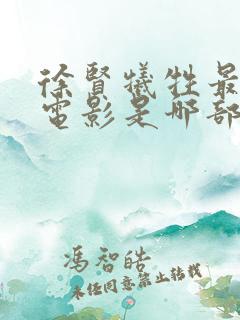 徐賢犧牲最
電影是哪部
馮智皓
未经同意禁止转载